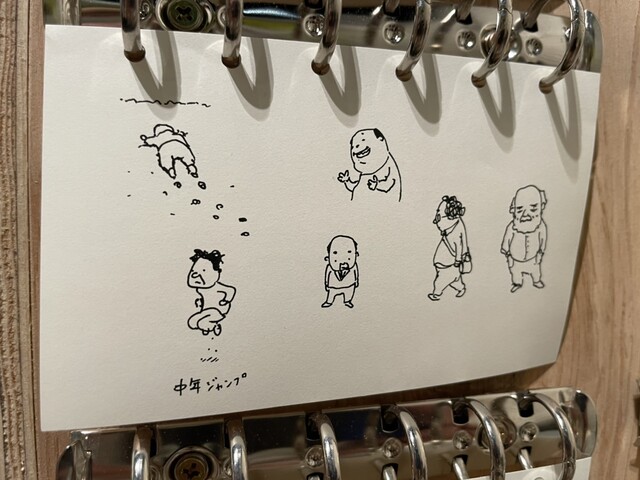 中年ジャンプ